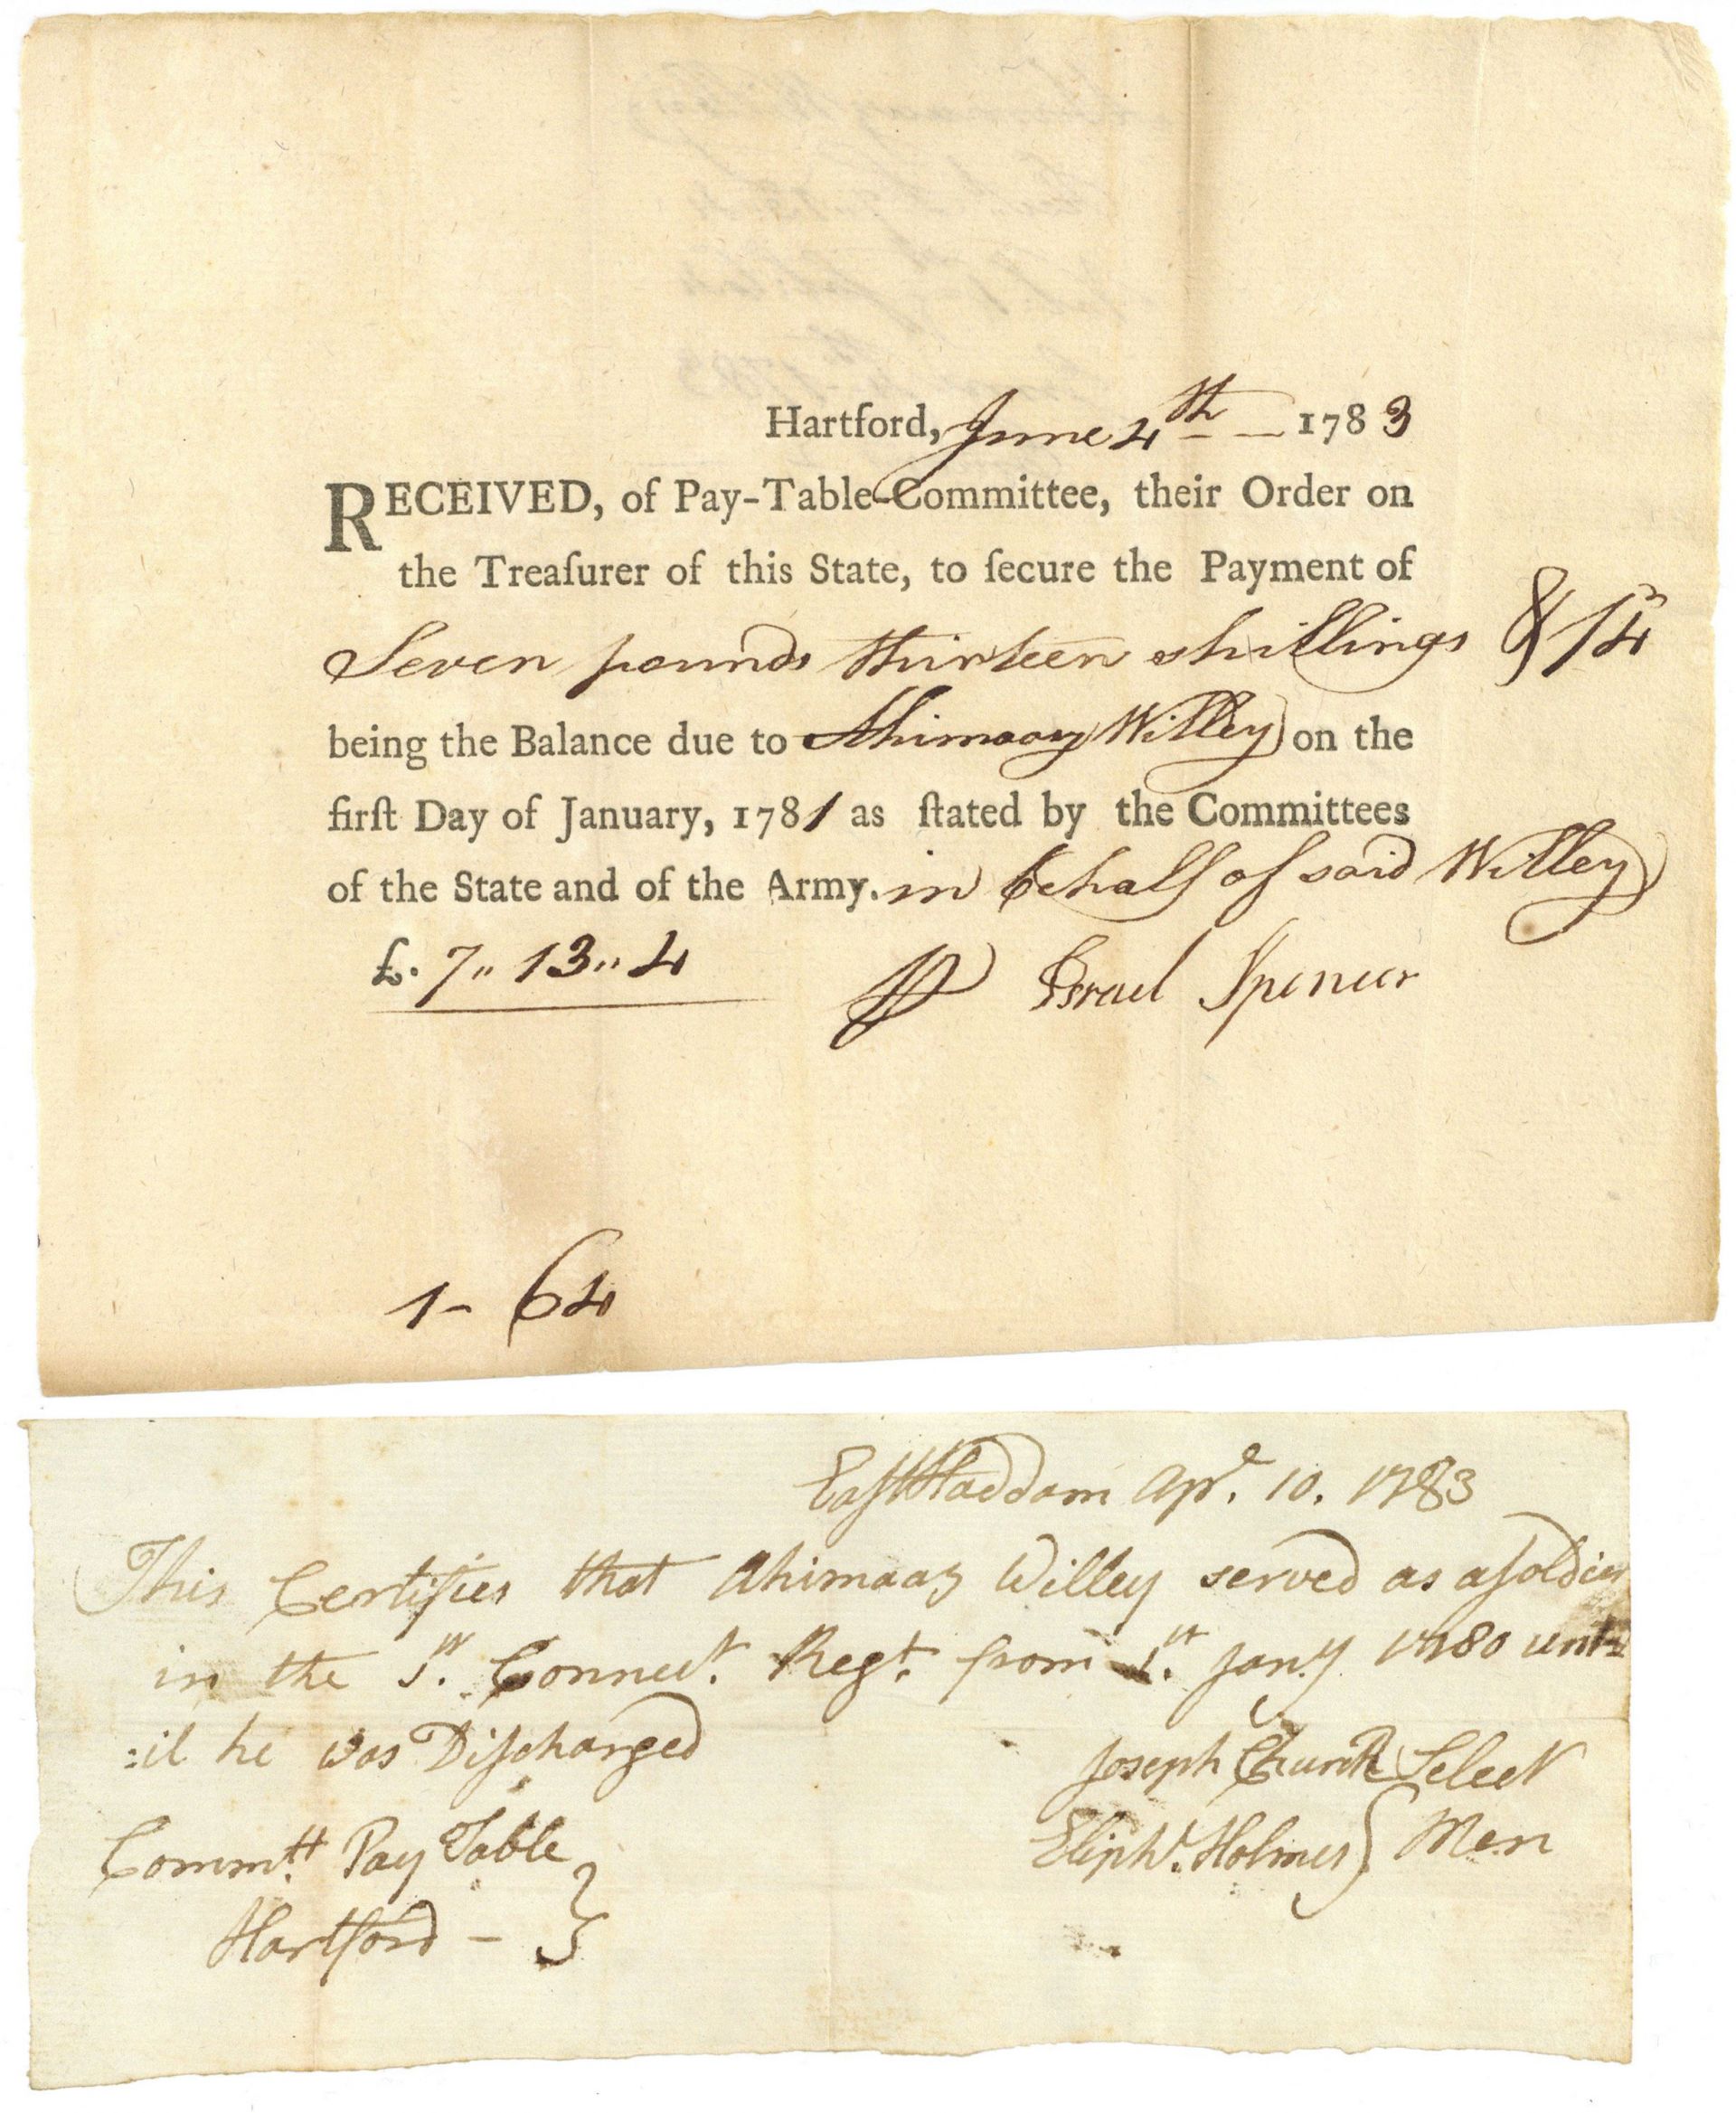 Hartford, June 4th — 1783
RECEIVED, of Pay-Table-Committee, their Order on
the Treaſurer of this State, to ſecure the Payment of
Seven pounds thirteen shillings & /4
being the Balance due to Ahimaaz Willey on the
firſt Day of January, 1781 as ſtated by the Committees
of the State and of the Army. in behalf of said Willey
£. 7,, 13,, 4
Israel Spencer
1- 64
Eaſt Haddam Apr. 10. 1783
This Certifies that Ahimaaz Willey served as a ſoldier
in the 1st. Connect. Regt. from 1st. Jany. 1780 unt=
:il he was Diſcharged
Joseph Church Select
Eliph't. Holmes } Men
Commtt. Pay Table
Hartford - }